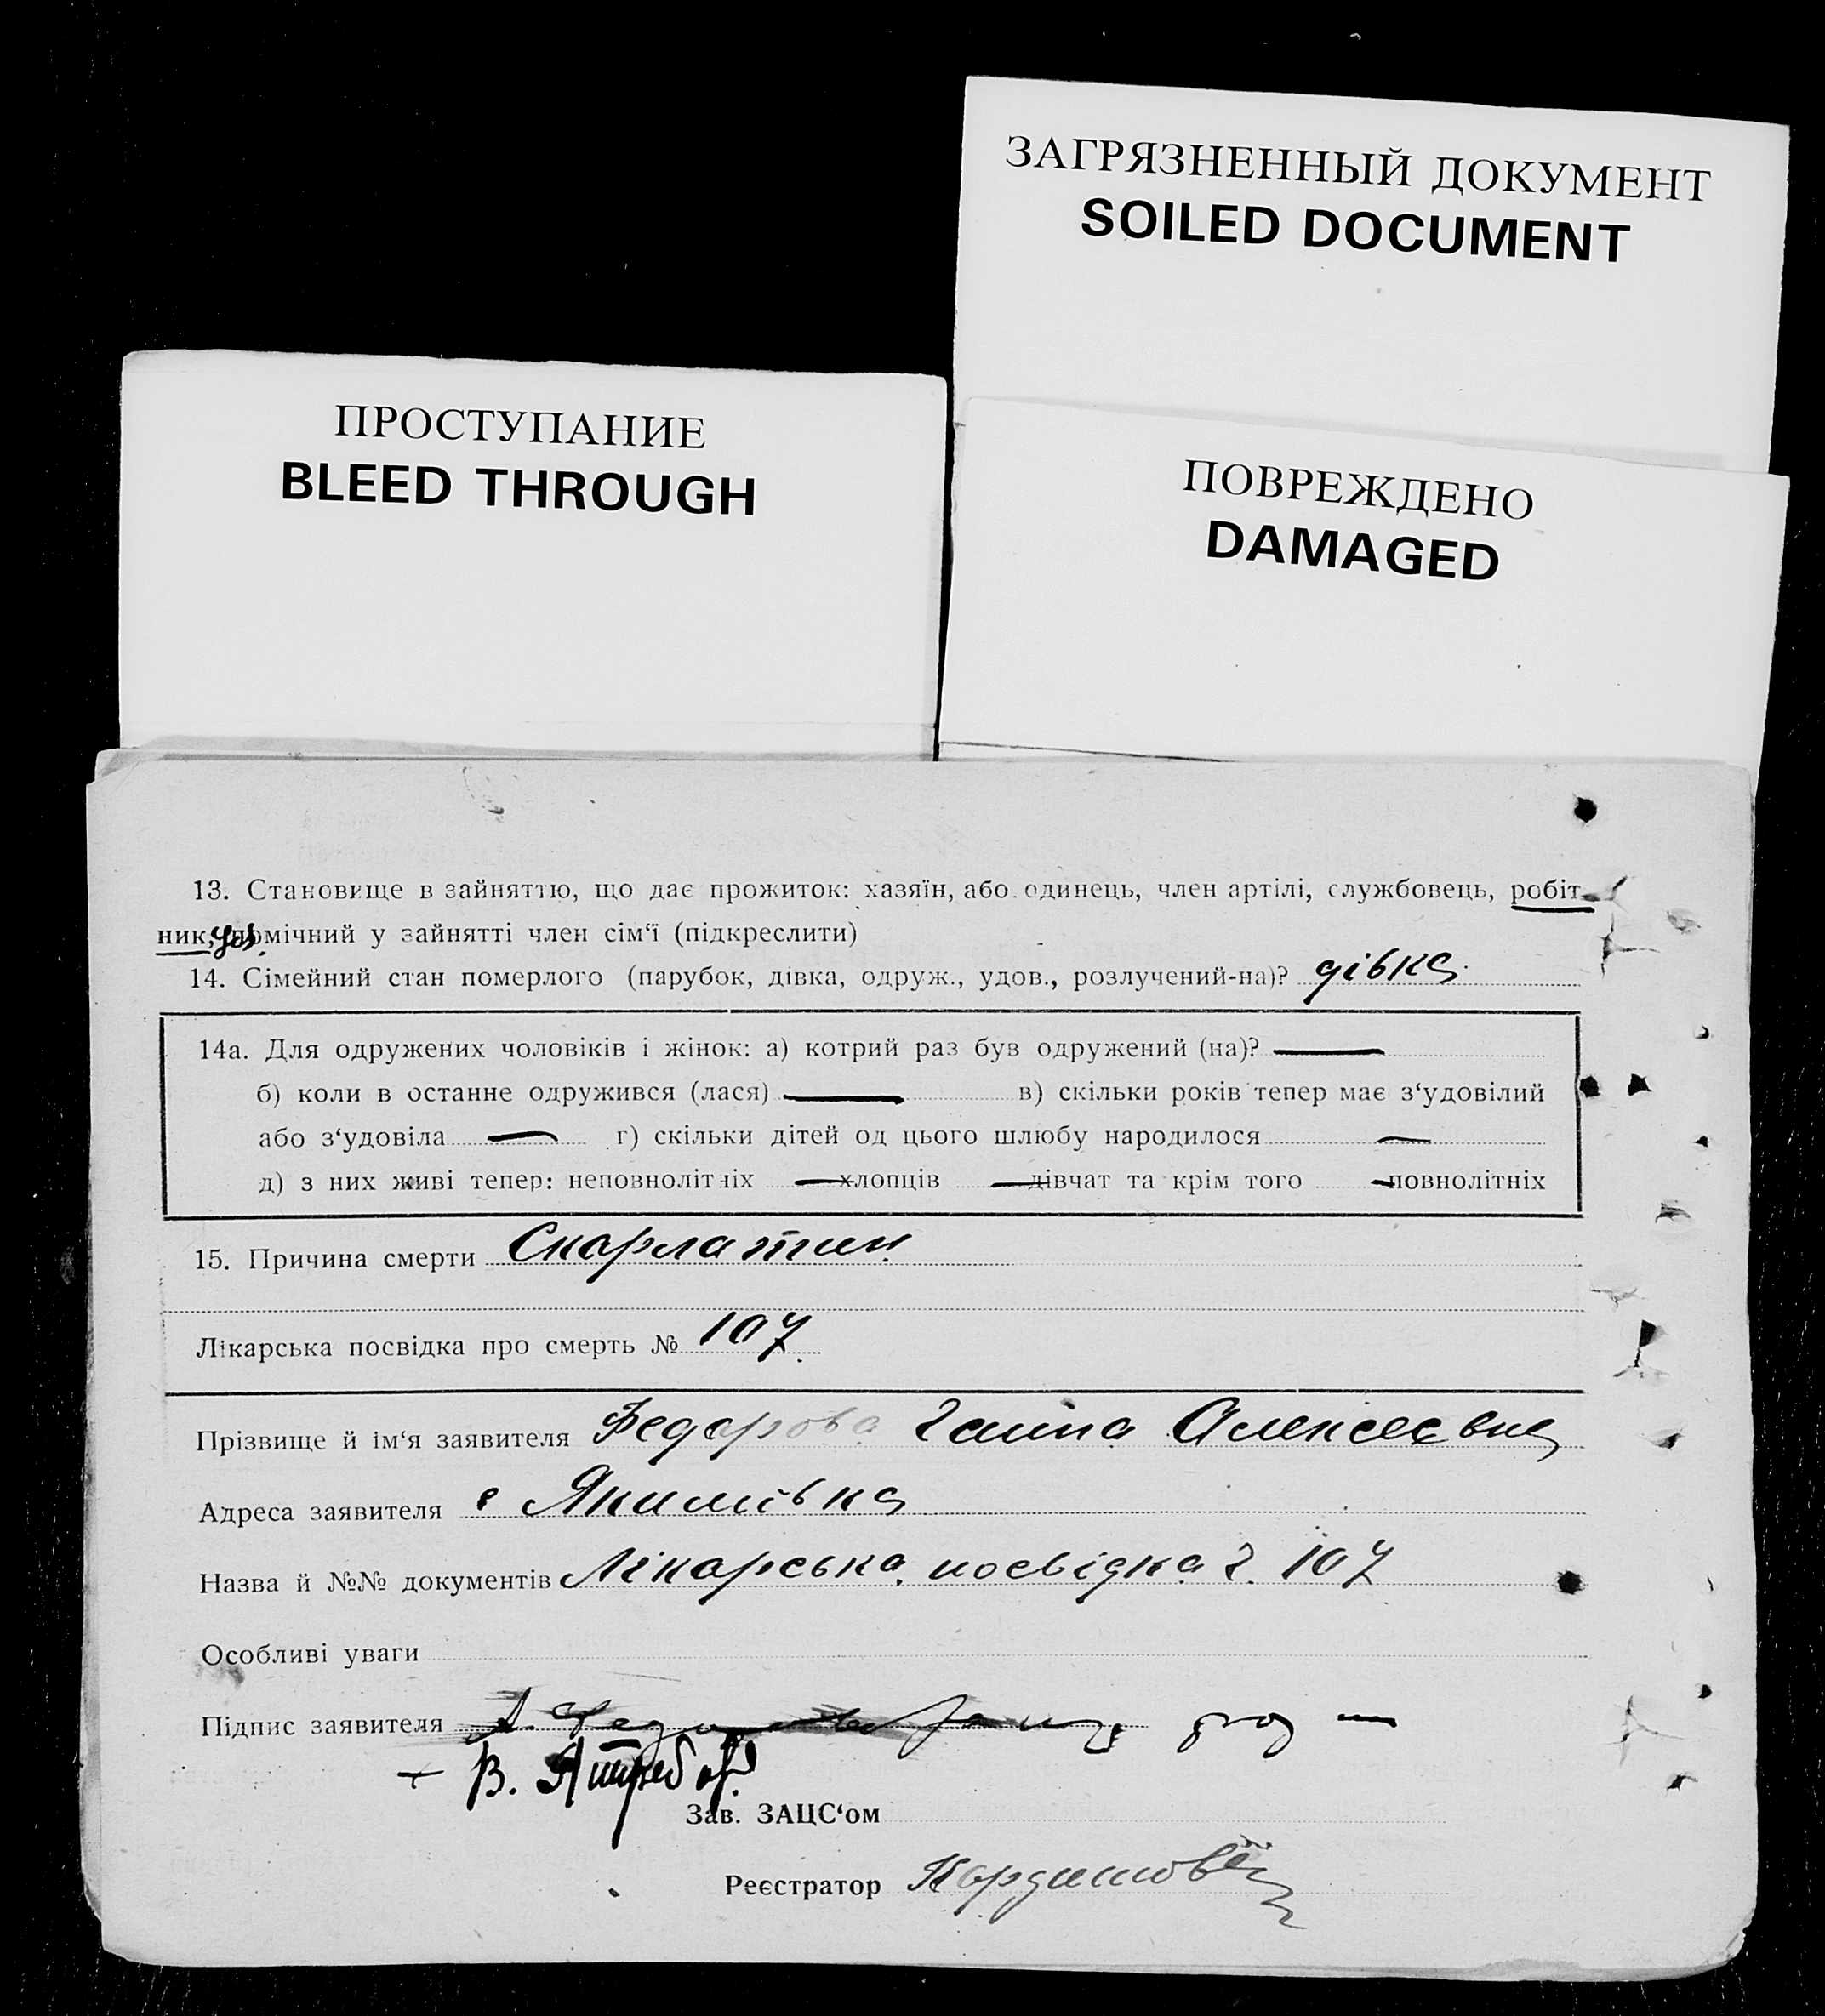 ЗАГРЯЗНЕННЫЙ ДОКУМЕНТ
SOILED DOCUMENT
ПРОСТУПАНИЕ
BLEED THROUGH
ПОВРЕЖДЕНО
DAMAGED
13. Становище в зайняттю, що дає прожиток: хазяїн, або одинець, член артілі, службовець, робіт-
ник, помічний у зайнятті член сім‘ї (підкреслити)
14. Сімейний стан померлого (парубок, дівка, одруж., удов., розлучений-на)? дівка
14а. Для одружених чоловіків і жінок: а) котрий раз був одружений (на)?
б) коли в останне одружився (лася) в) скільки років тепер має з‘удовілий
або з‘удовіла г) скільки дітей од цього шлюбу народилося
д) з них живі тепер: неповнолітніх хлопців дівчат та крім того повнолітніх
15. Причина смерти Скарлатин
Лікарська посвідка про смерть № 107
Прізвище й ім‘я заявителя Федорова Ганна Алексеевна
Адреса заявителя с Якимівка
Назва й №№ документів Лікарська посвідка 107
Особливі уваги
Підпис заявителя
В. Ятребов
Зав. ЗАЦС‘ом
Реєстратор